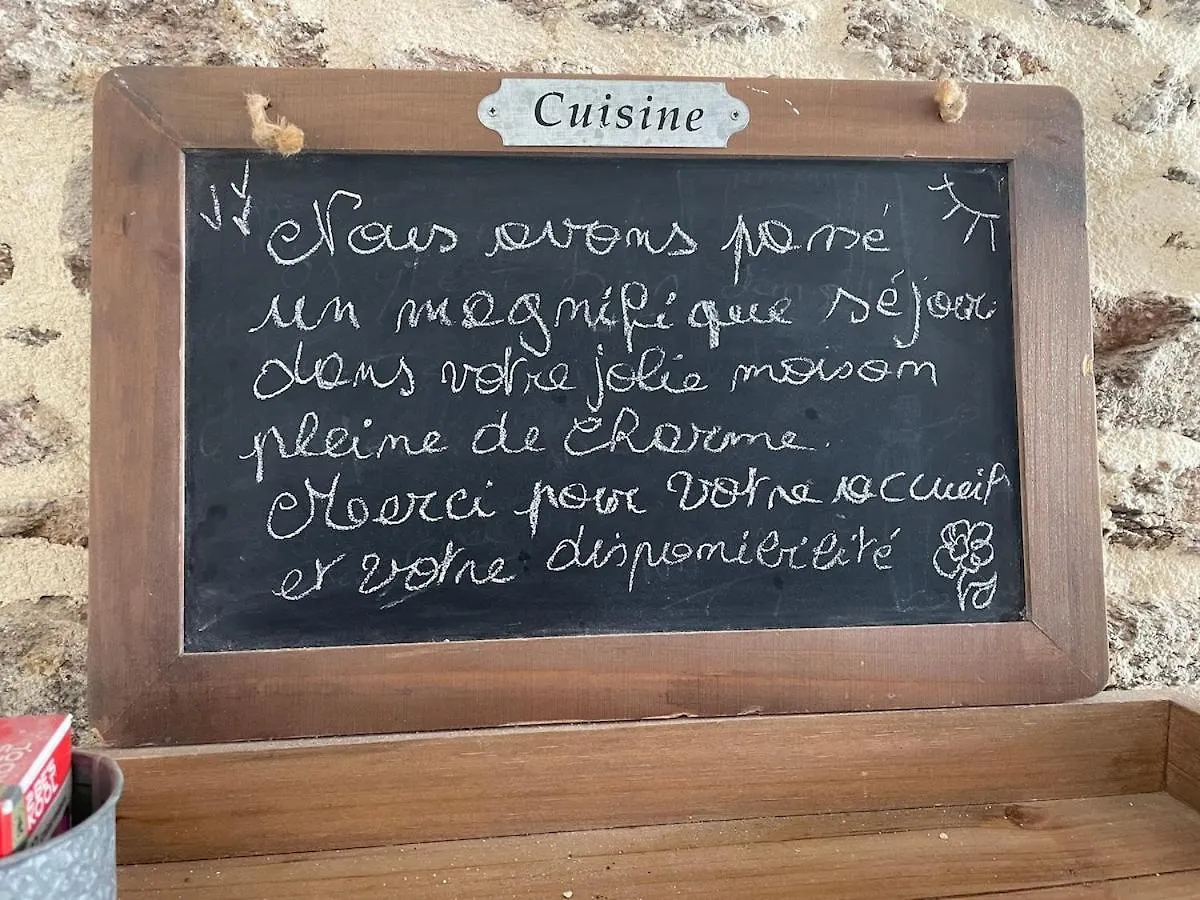 Cuisine
Nous avons passé
un magnifique séjour
dans votre jolie maison
pleine de charme.
Merci pour votre accueil
et votre disponibilité